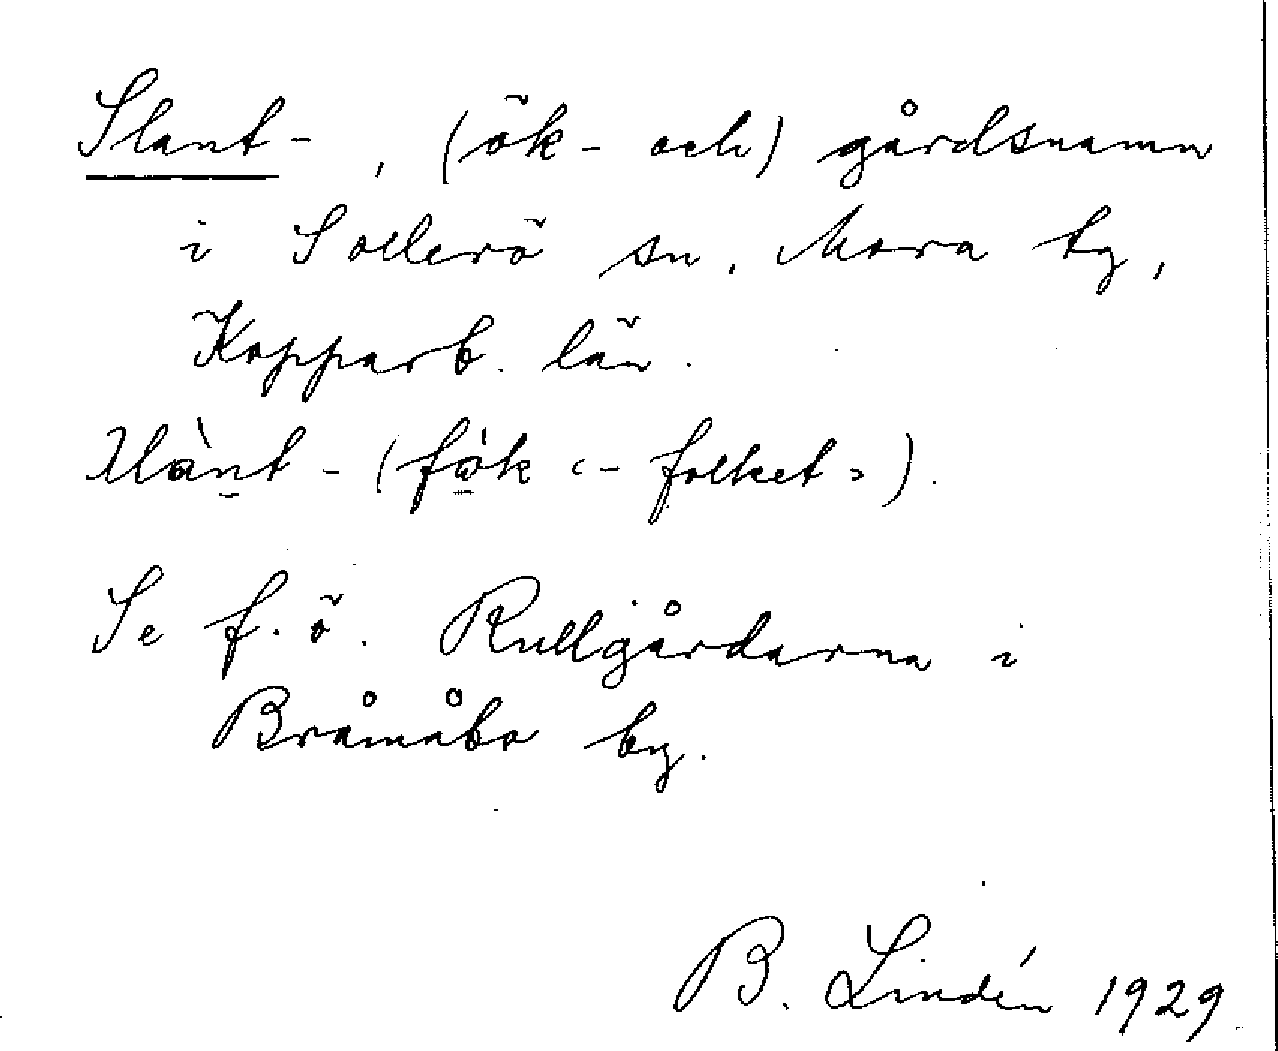 Slant-, (ök- och) gårdsnamn
i Sollerö sn. Mora tg,
Kopparb. län.
(fo̤̍k «-folket»).
Se f. ö. Rullgårdarna i
Bråmåbo by.
B. Lindén 1929